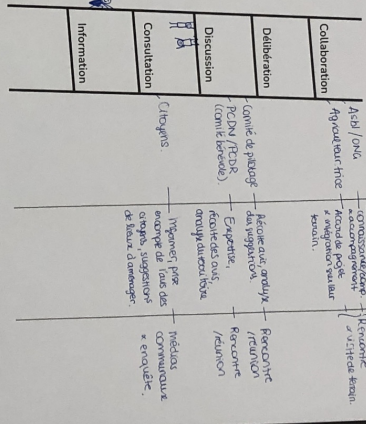 Collaboration
Asbl / ONG
Agriculteur·trice
connaissance/comp.
+ accompagnement
Accord de projet
+ intégration sur leur
terrain.
Rencontre
+ visite de terrain.
Délibération
Comité de pilotage
Récolte avis, analyse
des suggestions.
Rencontre
/réunion
Discussion
PCDN / PCDR
(comité bénévole).
Expertise,
récolte des avis,
analyse du territoire
Rencontre
/réunion
Consultation
Citoyens.
Informer, prise
en compte de l'avis des
citoyens, suggestions
de lieux à aménager.
médias
communaux
+ enquête.
Information